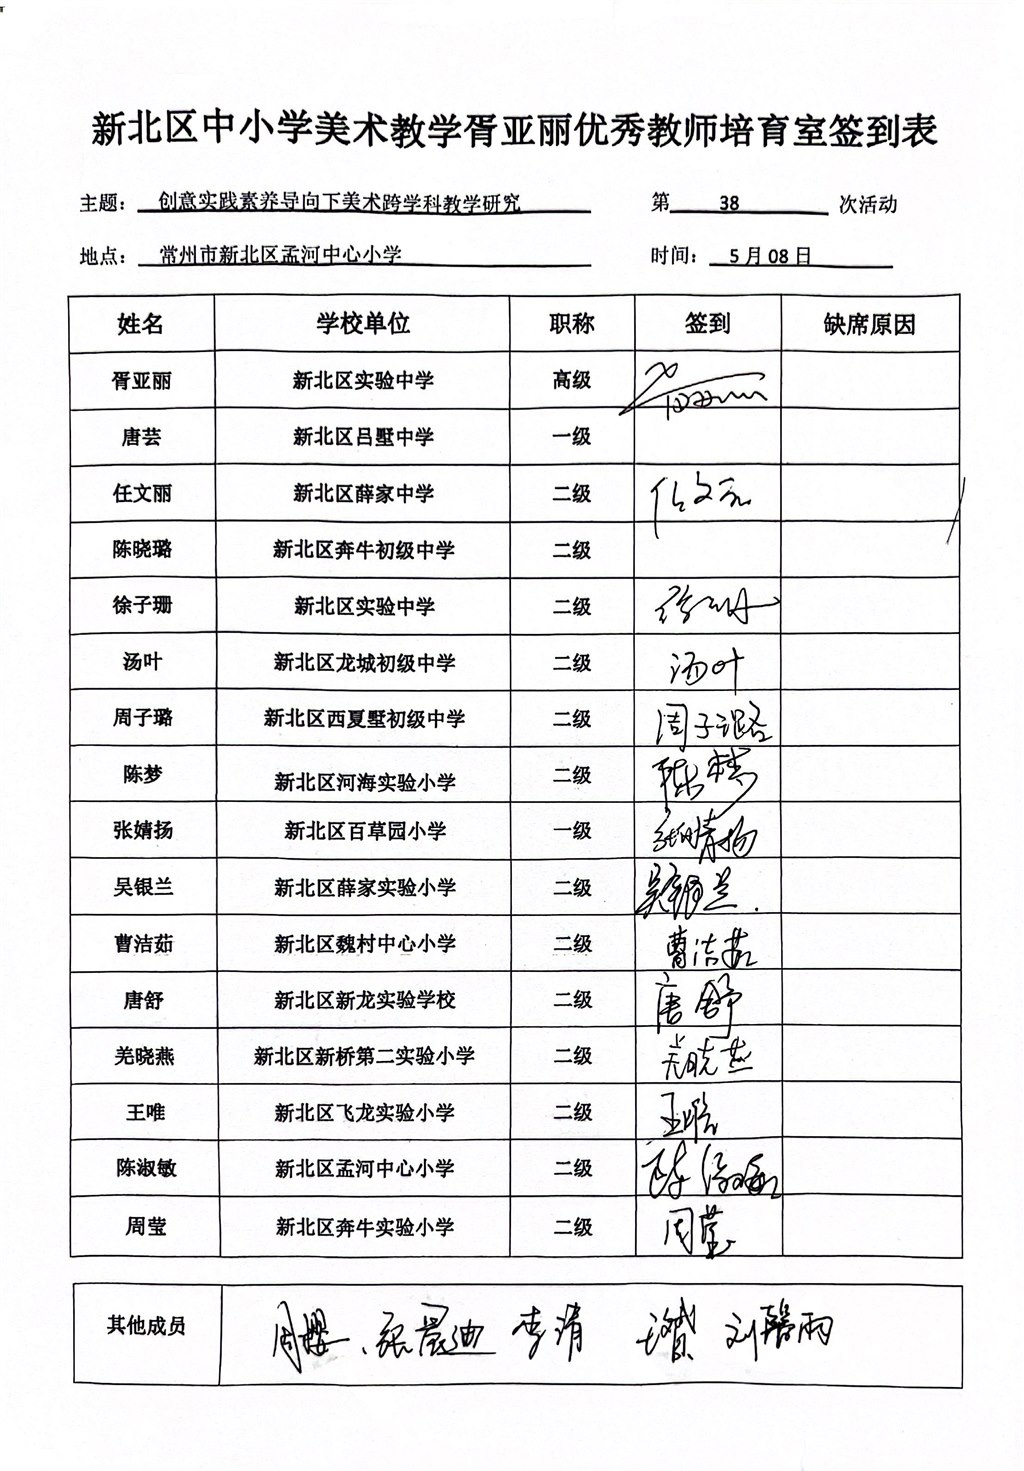 新北区中小学美术教学胥亚丽优秀教师培育室签到表
主题： 创意实践素养导向下美术跨学科教学研究 第 38 次活动
地点： 常州市新北区孟河中心小学 时间： 5月08日
姓名 学校单位 职称 签到 缺席原因
胥亚丽 新北区实验中学 高级
唐芸 新北区吕墅中学 一级
任文丽 新北区薛家中学 二级 任文丽
陈晓璐 新北区奔牛初级中学 二级
徐子珊 新北区实验中学 二级 徐子珊
汤叶 新北区龙城初级中学 二级 汤叶
周子璐 新北区西夏墅初级中学 二级 周子璐
陈梦 新北区河海实验小学 二级 陈梦
张婧扬 新北区百草园小学 一级 张婧扬
吴银兰 新北区薛家实验小学 二级 吴银兰
曹洁茹 新北区魏村中心小学 二级 曹洁茹
唐舒 新北区新龙实验学校 二级 唐舒
羌晓燕 新北区新桥第二实验小学 二级 羌晓燕
王唯 新北区飞龙实验小学 二级 王唯
陈淑敏 新北区孟河中心小学 二级 陈淑敏
周莹 新北区奔牛实验小学 二级 周莹
其他成员 周樱、张晨迪 李清 刘馨雨